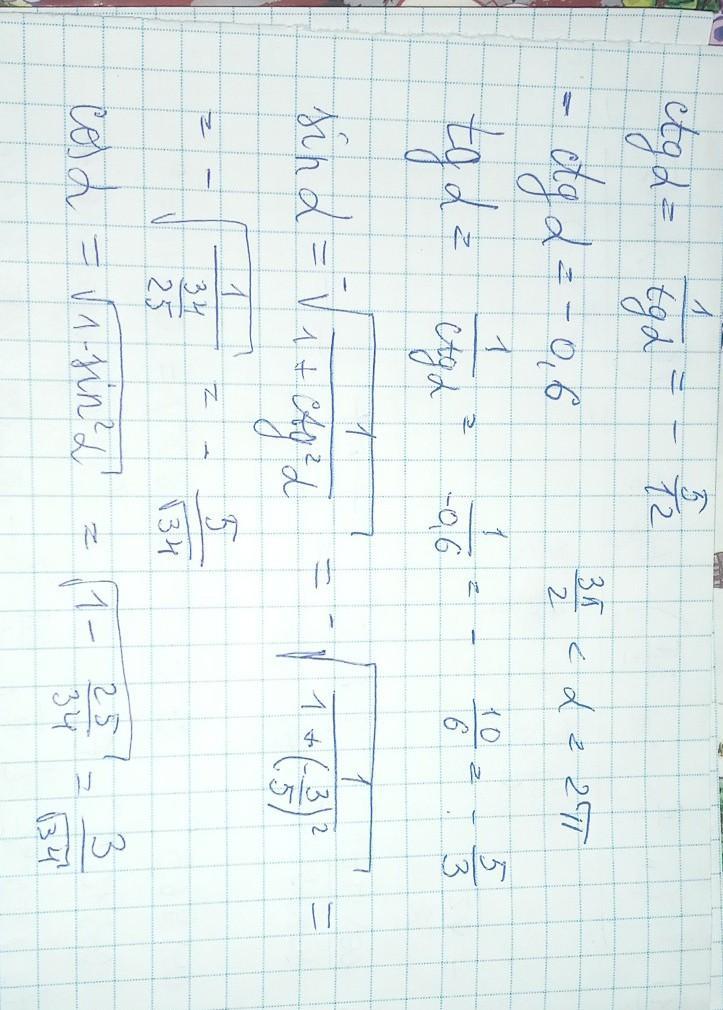 ctg α = 1/tg α = - 5/12
- ctg α = - 0,6 3π/2 < α < 2π
tg α = 1/ctg α = 1/-0,6 = - 10/6 = - 5/3
sin α = - √(1/(1 + ctg² α)) = - √(1/(1 + (-3/5)²)) =
= - √(1/(34/25)) = - 5/√34
cos α = √(1 - sin² α) = √(1 - 25/34) = 3/√34